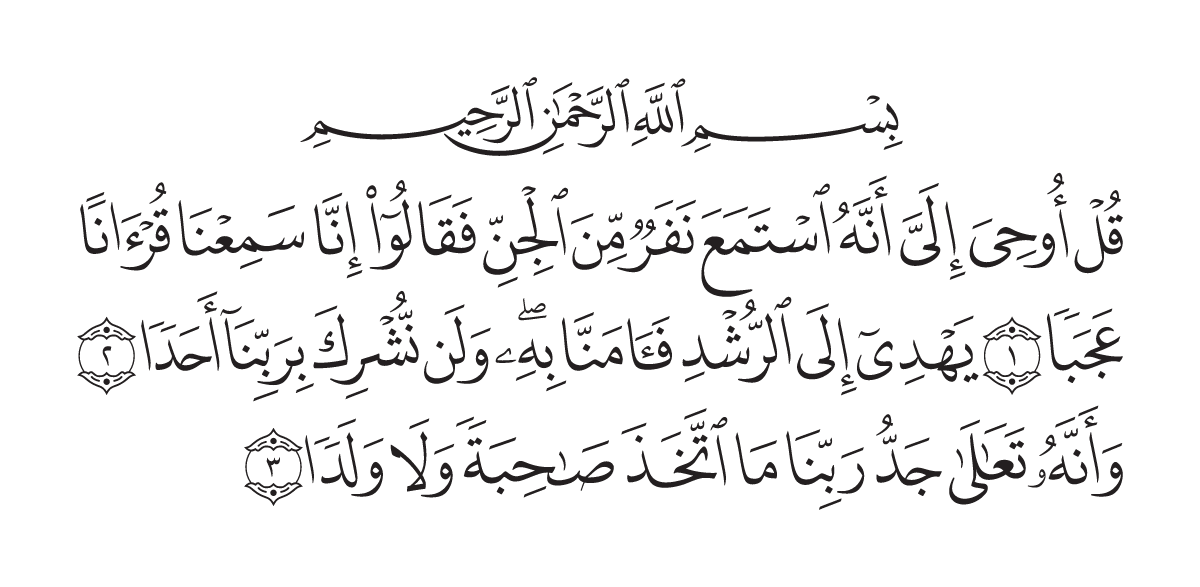 بِسْمِ ٱللَّهِ ٱلرَّحْمَٰنِ ٱلرَّحِيمِ
قُلْ أُوحِىَ إِلَىَّ أَنَّهُ ٱسْتَمَعَ نَفَرٌ مِّنَ ٱلْجِنِّ فَقَالُوٓا۟ إِنَّا سَمِعْنَا قُرْءَانًا
عَجَبًا ١ يَهْدِىٓ إِلَى ٱلرُّشْدِ فَـَٔامَنَّا بِهِۦ ۖ وَلَن نُّشْرِكَ بِرَبِّنَآ أَحَدًا ٢
وَأَنَّهُۥ تَعَٰلَىٰ جَدُّ رَبِّنَا مَا ٱتَّخَذَ صَٰحِبَةً وَلَا وَلَدًا ٣